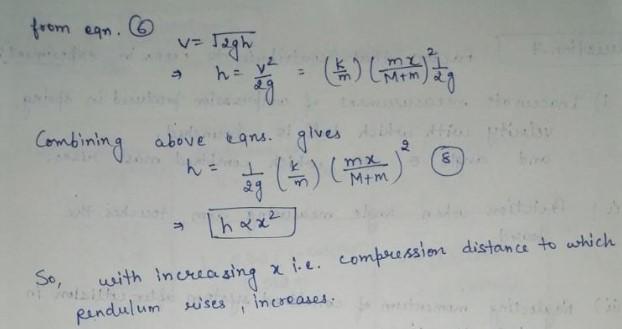 from eqn. ⑥
v = √2gh
⇒ h = v²/2g = (k/m) (mx/M+m)² 1/2g
Combining above eqns. gives
h = 1/2g (k/m) (mx/M+m)² ⑧
⇒ h ∝ x²
So, with increasing x i.e. compression distance to which
pendulum rises, increases.